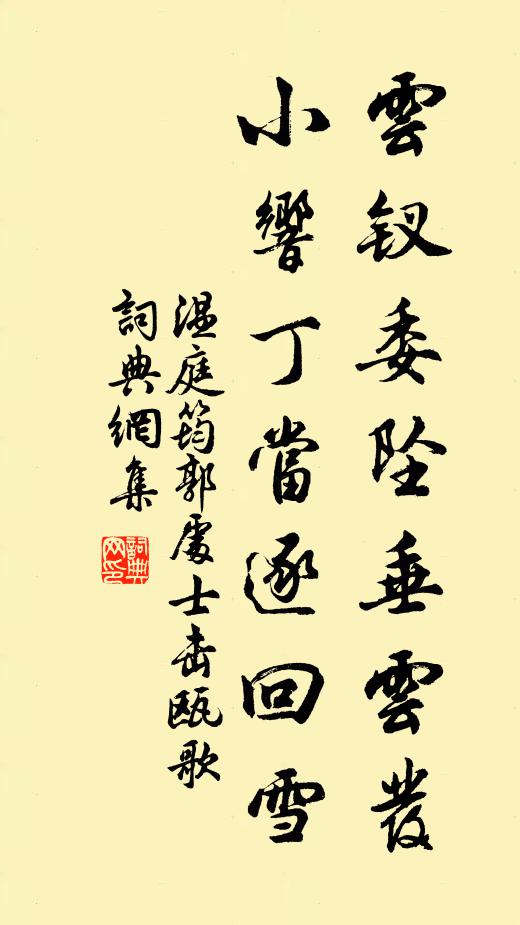 雲釵委坠垂雲發
小響丁當逐回雪
温庭筠郭處士击瓯歌
詞典網集
詞典網印